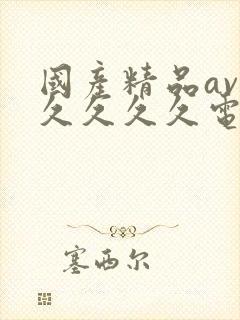 國産精品av
久久久久電
塞西尔